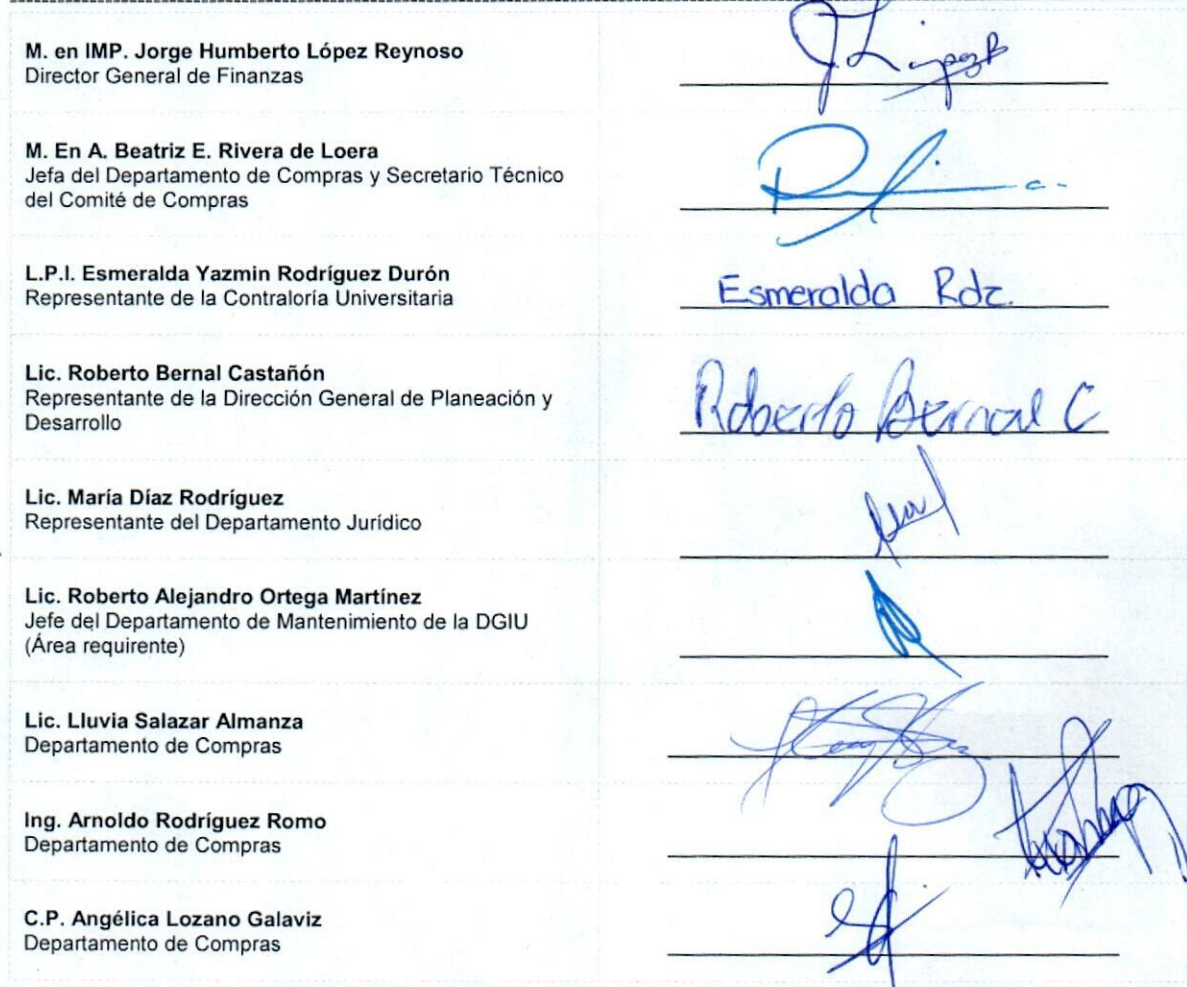 M. en IMP. Jorge Humberto López Reynoso
Director General de Finanzas
M. En A. Beatriz E. Rivera de Loera
Jefa del Departamento de Compras y Secretario Técnico
del Comité de Compras
L.P.I. Esmeralda Yazmin Rodríguez Durón
Representante de la Contraloría Universitaria
Esmeralda Rdz.
Lic. Roberto Bernal Castañón
Representante de la Dirección General de Planeación y
Desarrollo
Roberto Bernal C
Lic. María Díaz Rodríguez
Representante del Departamento Jurídico
Lic. Roberto Alejandro Ortega Martínez
Jefe del Departamento de Mantenimiento de la DGIU
(Área requirente)
Lic. Lluvia Salazar Almanza
Departamento de Compras
Ing. Arnoldo Rodríguez Romo
Departamento de Compras
C.P. Angélica Lozano Galaviz
Departamento de Compras